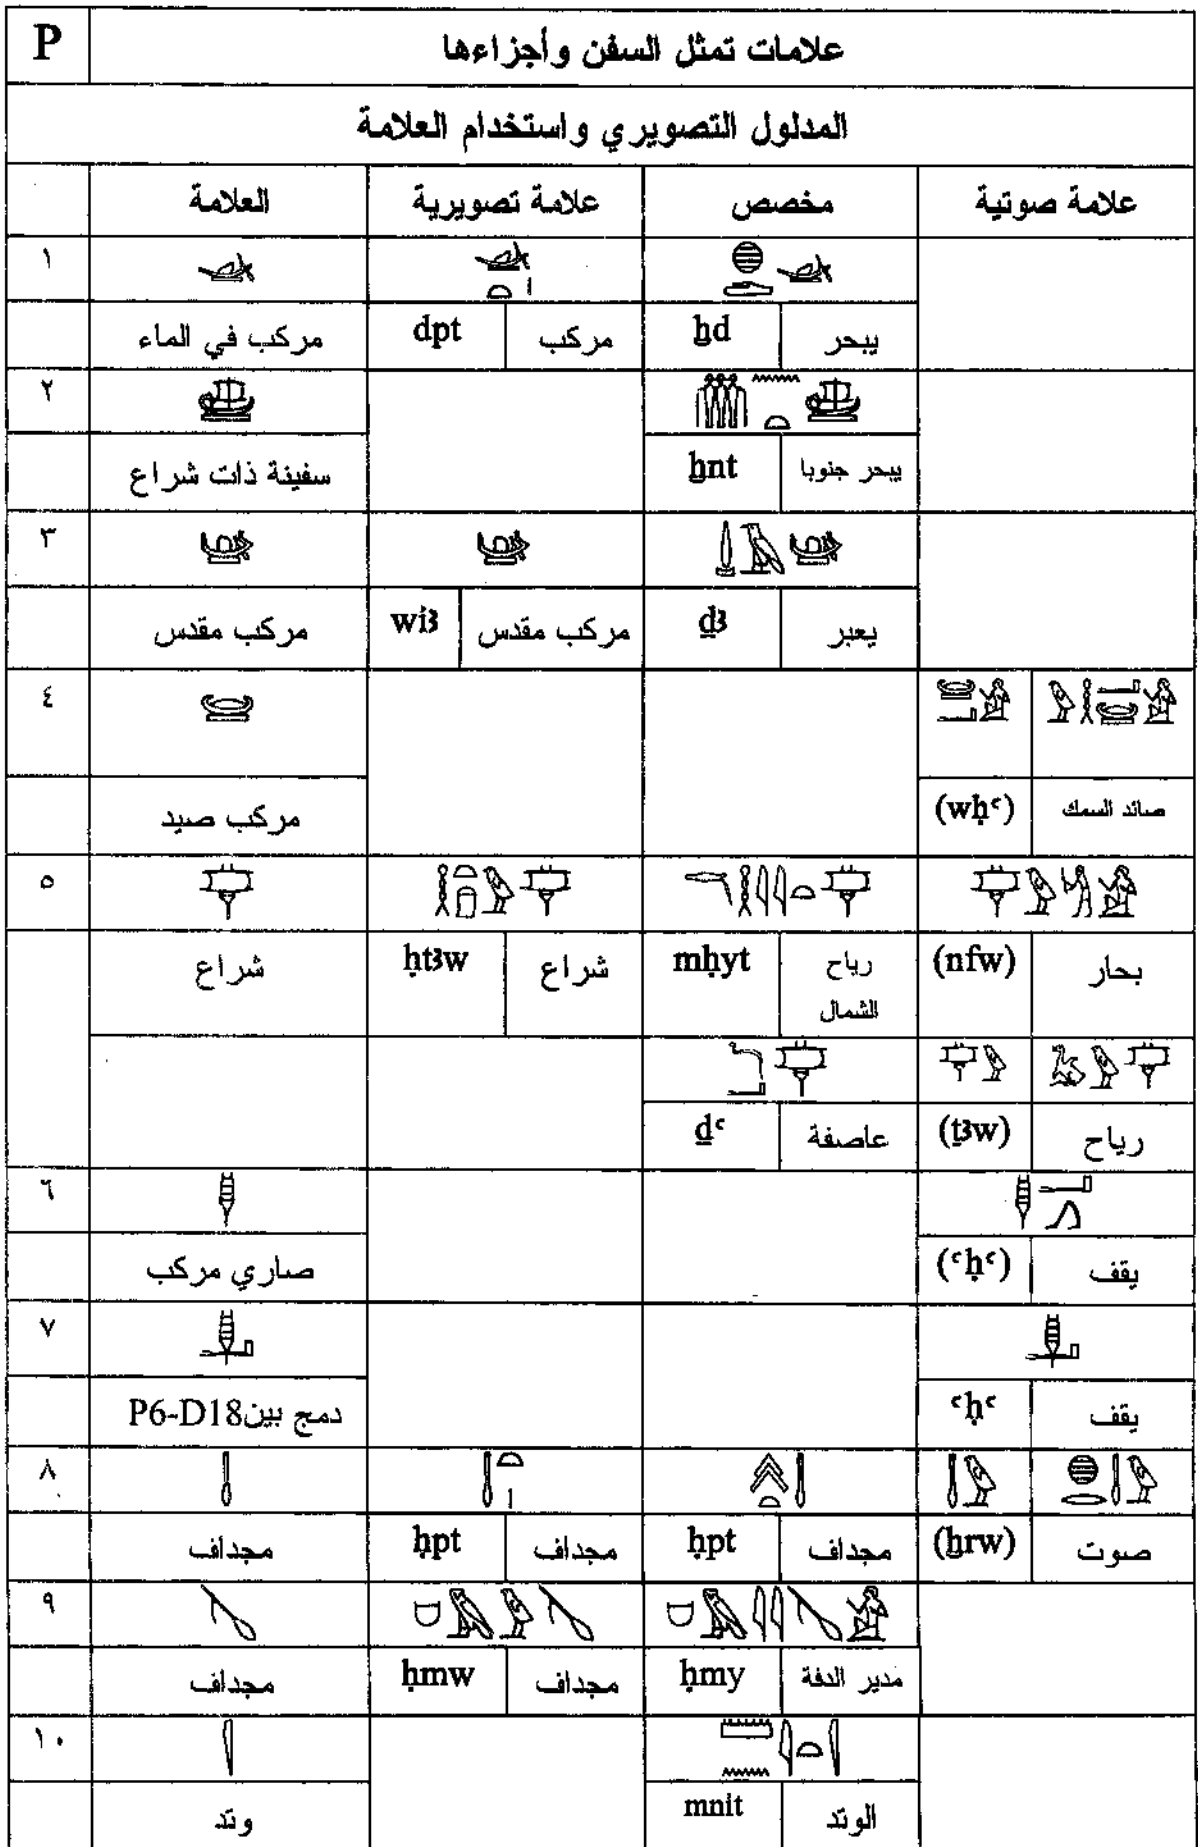 P علامات تمثل السفن وأجزاءها
المدلول التصويري واستخدام العلامة
العلامة علامة تصويرية مخصص علامة صوتية
١
مركب في الماء dpt مركب ẖd يبحر
٢
سفينة ذات شراع ẖnt يبحر جنوبا
٣
مركب مقدس wiꜣ مركب مقدس ḏꜣ يعبر
٤
مركب صيد (wḥꜥ) صائد السمك
٥
شراع ḥtꜣw شراع mḥyt رياح الشمال (nfw) بحار
ḏꜥ عاصفة (ṯꜣw) رياح
٦
صاري مركب (ꜥḥꜥ) يقف
٧
دمج بين P6-D18 ꜥḥꜥ يقف
٨
مجداف ḥpt مجداف ḥpt مجداف (ẖrw) صوت
٩
مجداف ḥmw مجداف ḥmy مدير الدفة
١٠
وتد mnit الوتد